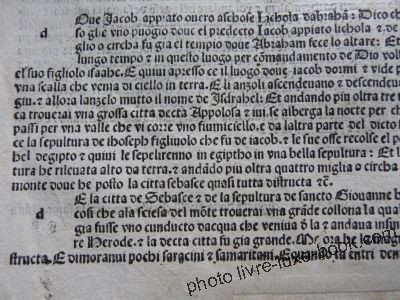 Oue Jacob appiato ouero aschose Lichola dabrahã: Dico ch
d so glie vno puogio doue el predecto Jacob appiato lichola et de
glio o circha fu gia el tempio doue Abraham fece lo altare: Et
lungo tempo et in questo luogo per cõmandamento de Dio vol
el suo figliolo isaahc. E quiui apresso ce il luogo doue iacob dormi et vide p
vna scalla che venia di ciello in terra. E li anzoli ascendeuano et descendeu
giu. et allora lanzelo mutto il nome de Jsdrahel: Et andando piu oltra tre
ca trouerai vna grossa citta decta Appolosa et iui se alberga la nocte per ch
passi per vna valle che vi corre vno fiumiciello. et da laltra parte del dicto f
ce la sepultura de ihoseph figliuolo che fu de iacob. et le sue osse recolse el po
bel degipto et quiui le sepelirenno in egiptho in vna bella sepultura: Et l
tura he rileuata alto da terra. et andãdo piu oltra quattro miglia o circha
monte doue he posto la citta sebasce quasi tutta distructa etc̃.
E la citta de Sebasce et de la sepultura de sancto Giouanne b
d cosi che ala sciesa del mõte trouerai vna grãde collona la qual
gia fusse vno conducto dacqua che veniua dl̃a et andaua infin
re Herode. et la decta citta fu gia grande. Mo ora he
structa. E dimoranui pochi saracini et samaritani. E quando tu entri den
photo livre-luxe-book.com